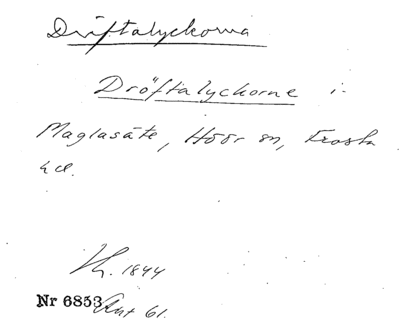 Driftalyckorna
Dröftalyckorne i
Maglasäte, Höör sn, Frosta
hd.
1844
Nr 6853 Ant 61.